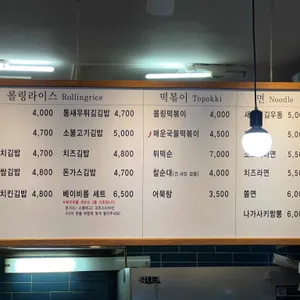 롤링라이스 Rollingrice
4,000 통새우튀김김밥 4,700
4,700 소불고기김밥 5,000
치김밥 4,700 치즈김밥 4,800
쌈김밥 4,800 돈가스김밥 4,700
치킨김밥 4,800 베이비롤 세트 6,500
떡볶이 Topokki
롤링떡볶이 4,000
매운국물떡볶이 4,500
튀떡순 7,000
찰순대 4,000
어묵탕 3,500
면 Noodle
김우동 5,000
5,000
치즈라면
쫄면
나가사키짬뽕